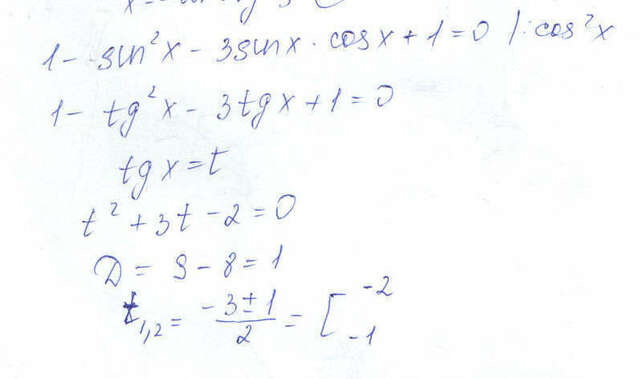 1 - sin²x - 3sinx · cosx + 1 = 0 | : cos²x
1 - tg²x - 3tgx + 1 = 0
tgx = t
t² + 3t - 2 = 0
D = 9 - 8 = 1
t₁,₂ = (-3 ± 1)/2 = [ -2
-1